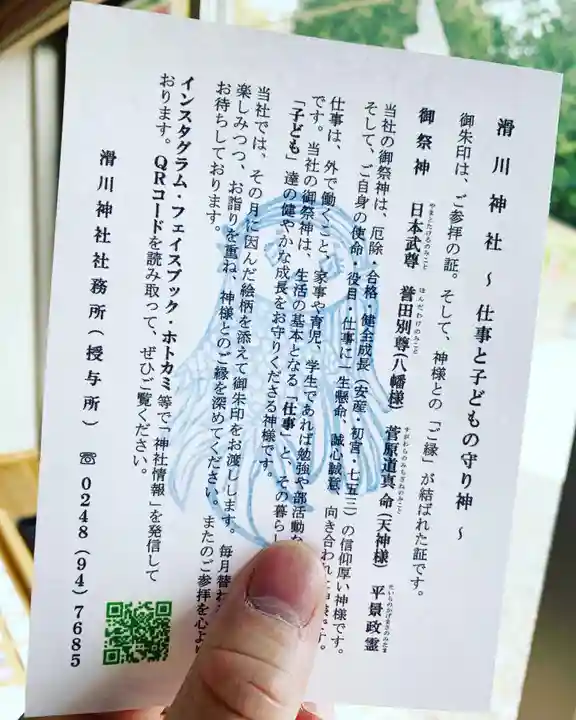 滑川神社 ～ 仕事と子どもの守り神 ～
御朱印は、ご参拝の証。そして、神様との「ご縁」が結ばれた証です。
御祭神 日本武尊 誉田別尊(八幡様) 菅原道真命(天神様) 平景政霊
やまとたけるのみこと ほんだわけのみこと すがわらのみちざねのみこと たいらのかげまさのみたま
当社の御祭神は、厄除・合格・健全成長(安産・初宮・七五三)の信仰厚い神様です。
そして、ご自身の使命・役目・仕事に一生懸命、誠心誠意、向き合われた神様です。
仕事は、外で働くこと、家事や育児、学生であれば勉強や部活動な
です。当社の御祭神は、生活の基本となる「仕事」と、その暮らし
「子ども」達の健やかな成長をお守りくださる神様です。
当社では、その月に因んだ絵柄を添えて御朱印をお渡しします。毎月替わ
楽しみつつ、お詣りを重ね、神様とのご縁を深めてください。またのご参拝を心より
お待ちしております。
インスタグラム・フェイスブック・ホトカミ等で「神社情報」を発信して
おります。QRコードを読み取って、ぜひご覧ください。
滑川神社社務所(授与所) ☎0248(94)7685